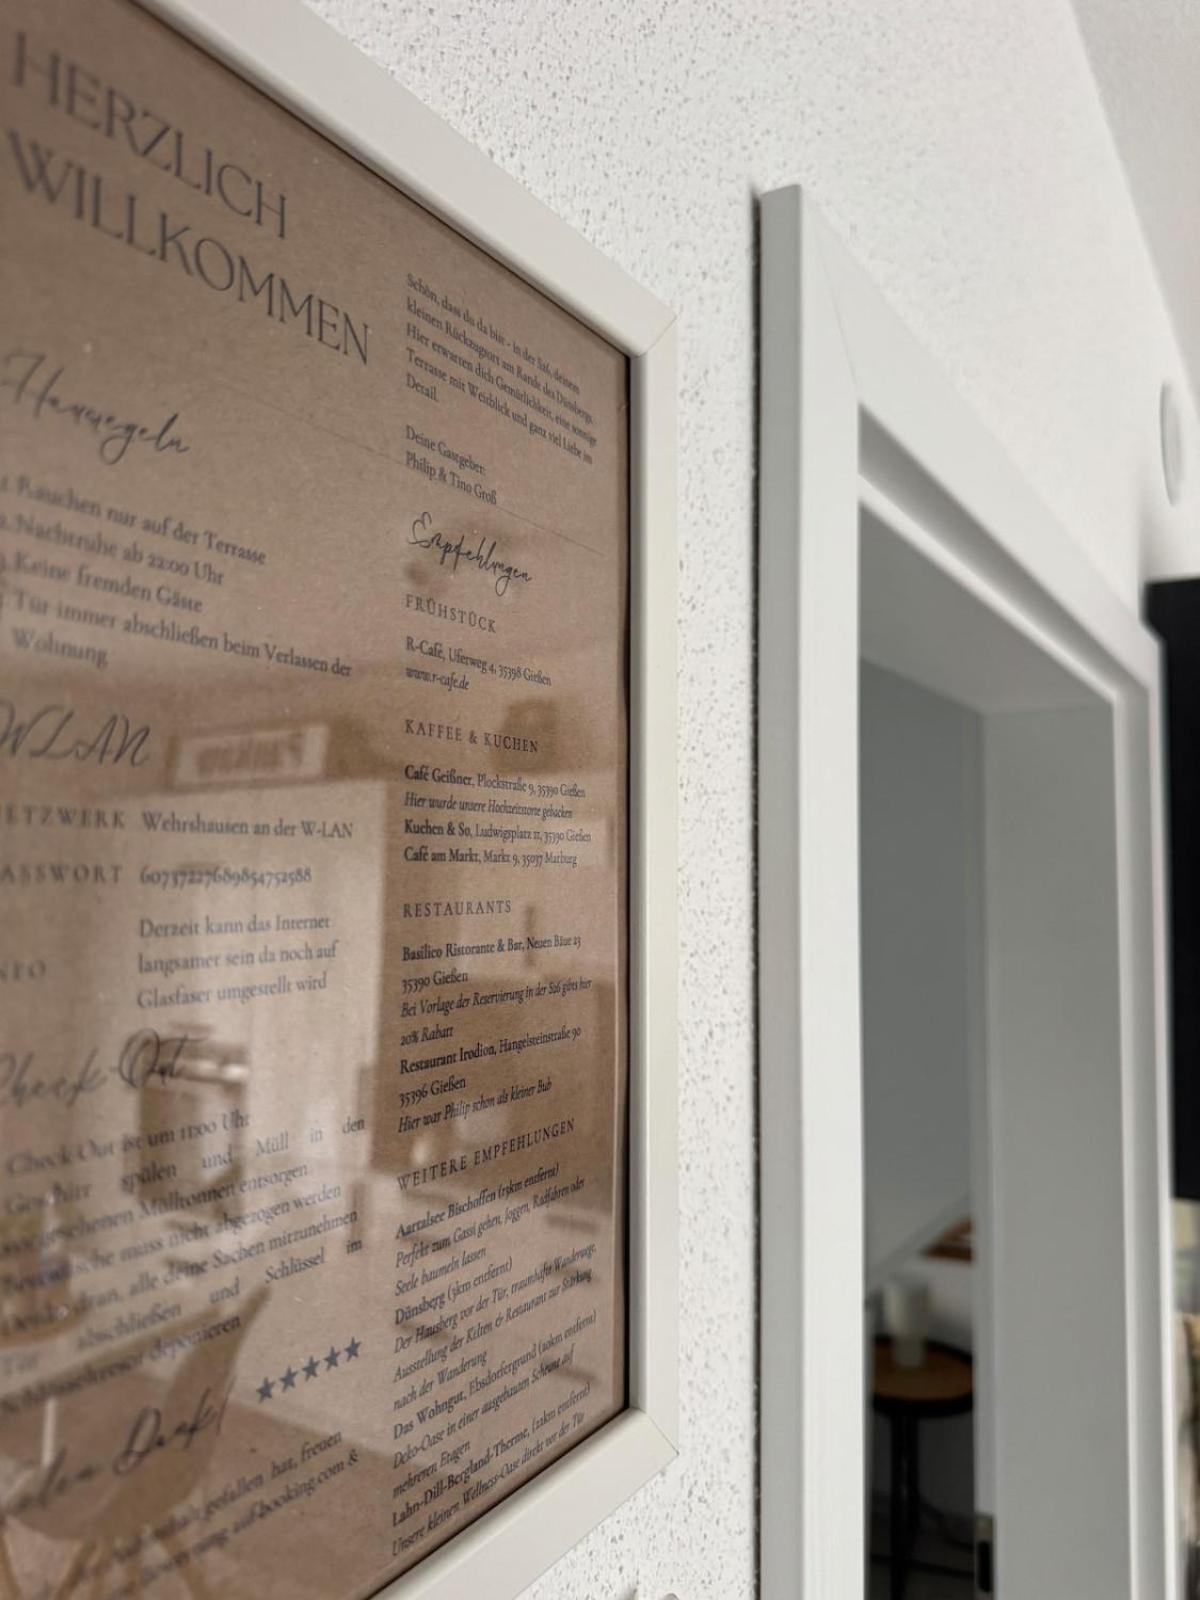 HERZLICH
WILLKOMMEN
Hausregeln
1. Rauchen nur auf der Terrasse
2. Nachtruhe ab 22:00 Uhr
3. Keine fremden Gäste
Tür immer abschließen beim Verlassen der
Wohnung
WLAN
NETZWERK Wehrshausen an der W-LAN
PASSWORT
Derzeit kann das Internet
langsamer sein da noch auf
Glasfaser umgestellt wird
Check-Out
Check Out ist um 11:00 Uhr
Geschirr spülen und Müll in den
vorgesehenen Mülltonnen entsorgen
Bettwäsche muss nicht abgezogen werden
Denke dran, alle deine Sachen mitzunehmen
Tür abschließen und Schlüssel im
Schlüsseltresor deponieren
★★★★★
Vielen Dank!
Aufenthalt gefallen hat, freuen
auf booking.com &
Schön, dass du da bist - in der S26, deinem
kleinen Rückzugsort am Rande des Dünsbergs.
Hier erwarten dich Gemütlichkeit, eine sonnige
Terrasse mit Weitblick und ganz viel Liebe im
Detail.
Deine Gastgeber:
Philip & Tino Groß
Empfehlungen
FRÜHSTÜCK
R-Café, Uferweg 4, 35398 Gießen
www.r-cafe.de
KAFFEE & KUCHEN
Café Geißner, Plockstraße 9, 35390 Gießen
Hier wurde unsere Hochzeitstorte gebacken
Kuchen & So, Ludwigsplatz 11, 35390 Gießen
Café am Markt, Markt 9, 35037 Marburg
RESTAURANTS
Basilico Ristorante & Bar, Neuen Bäue 23
35390 Gießen
Bei Vorlage der Reservierung in der S26 gibts hier
20% Rabatt
Restaurant Irodion, Hangelsteinstraße 90
35396 Gießen
Hier war Philip schon als kleiner Bub
WEITERE EMPFEHLUNGEN
Aartalsee Bischoffen (13km entfernt)
Perfekt zum Gassi gehen, Joggen, Radfahren oder
Seele baumeln lassen
Dünsberg (3km entfernt)
Der Hausberg vor der Tür, traumhafte Wanderwege,
Ausstellung der Kelten & Restaurant zur Stärkung
nach der Wanderung
Das Wohngut, Ebsdorfergrund (20km entfernt)
Deko-Oase in einer ausgebauten Scheune auf
mehreren Etagen
Lahn-Dill-Bergland-Therme, (22km entfernt)
Unsere kleinen Wellness-Oase direkt vor der Tür